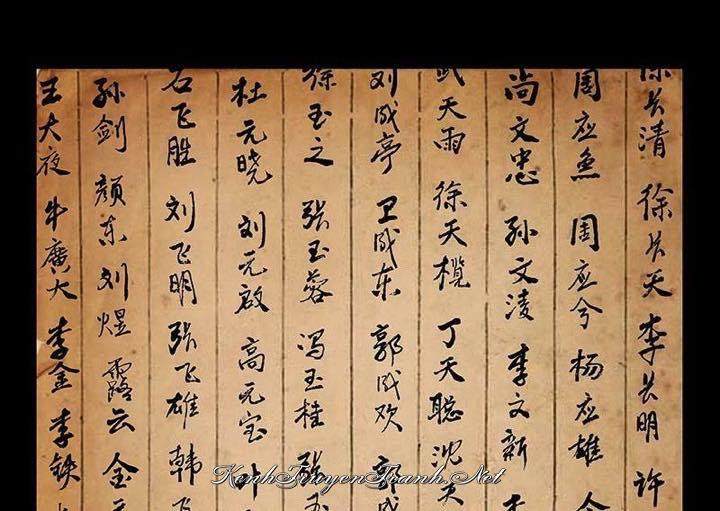 长清 徐长天 李长明 许
周应鱼 周应兮 杨应雄
尚文忠 孙文凌 李文新
武天雨 徐天榄 丁天聪 沈天
刘成亭 卫成东 郭成欢 郭成
徐玉之 张玉蓉 冯玉桂 张玉
杜元晓 刘元啟 高元宝 叶
石飞胜 刘飞明 张飞雄 韩飞
孙剑 颜东 刘煜 露云 金
王大夜 牛廣大 李金 李铁
KenhTruyenTranh.Net